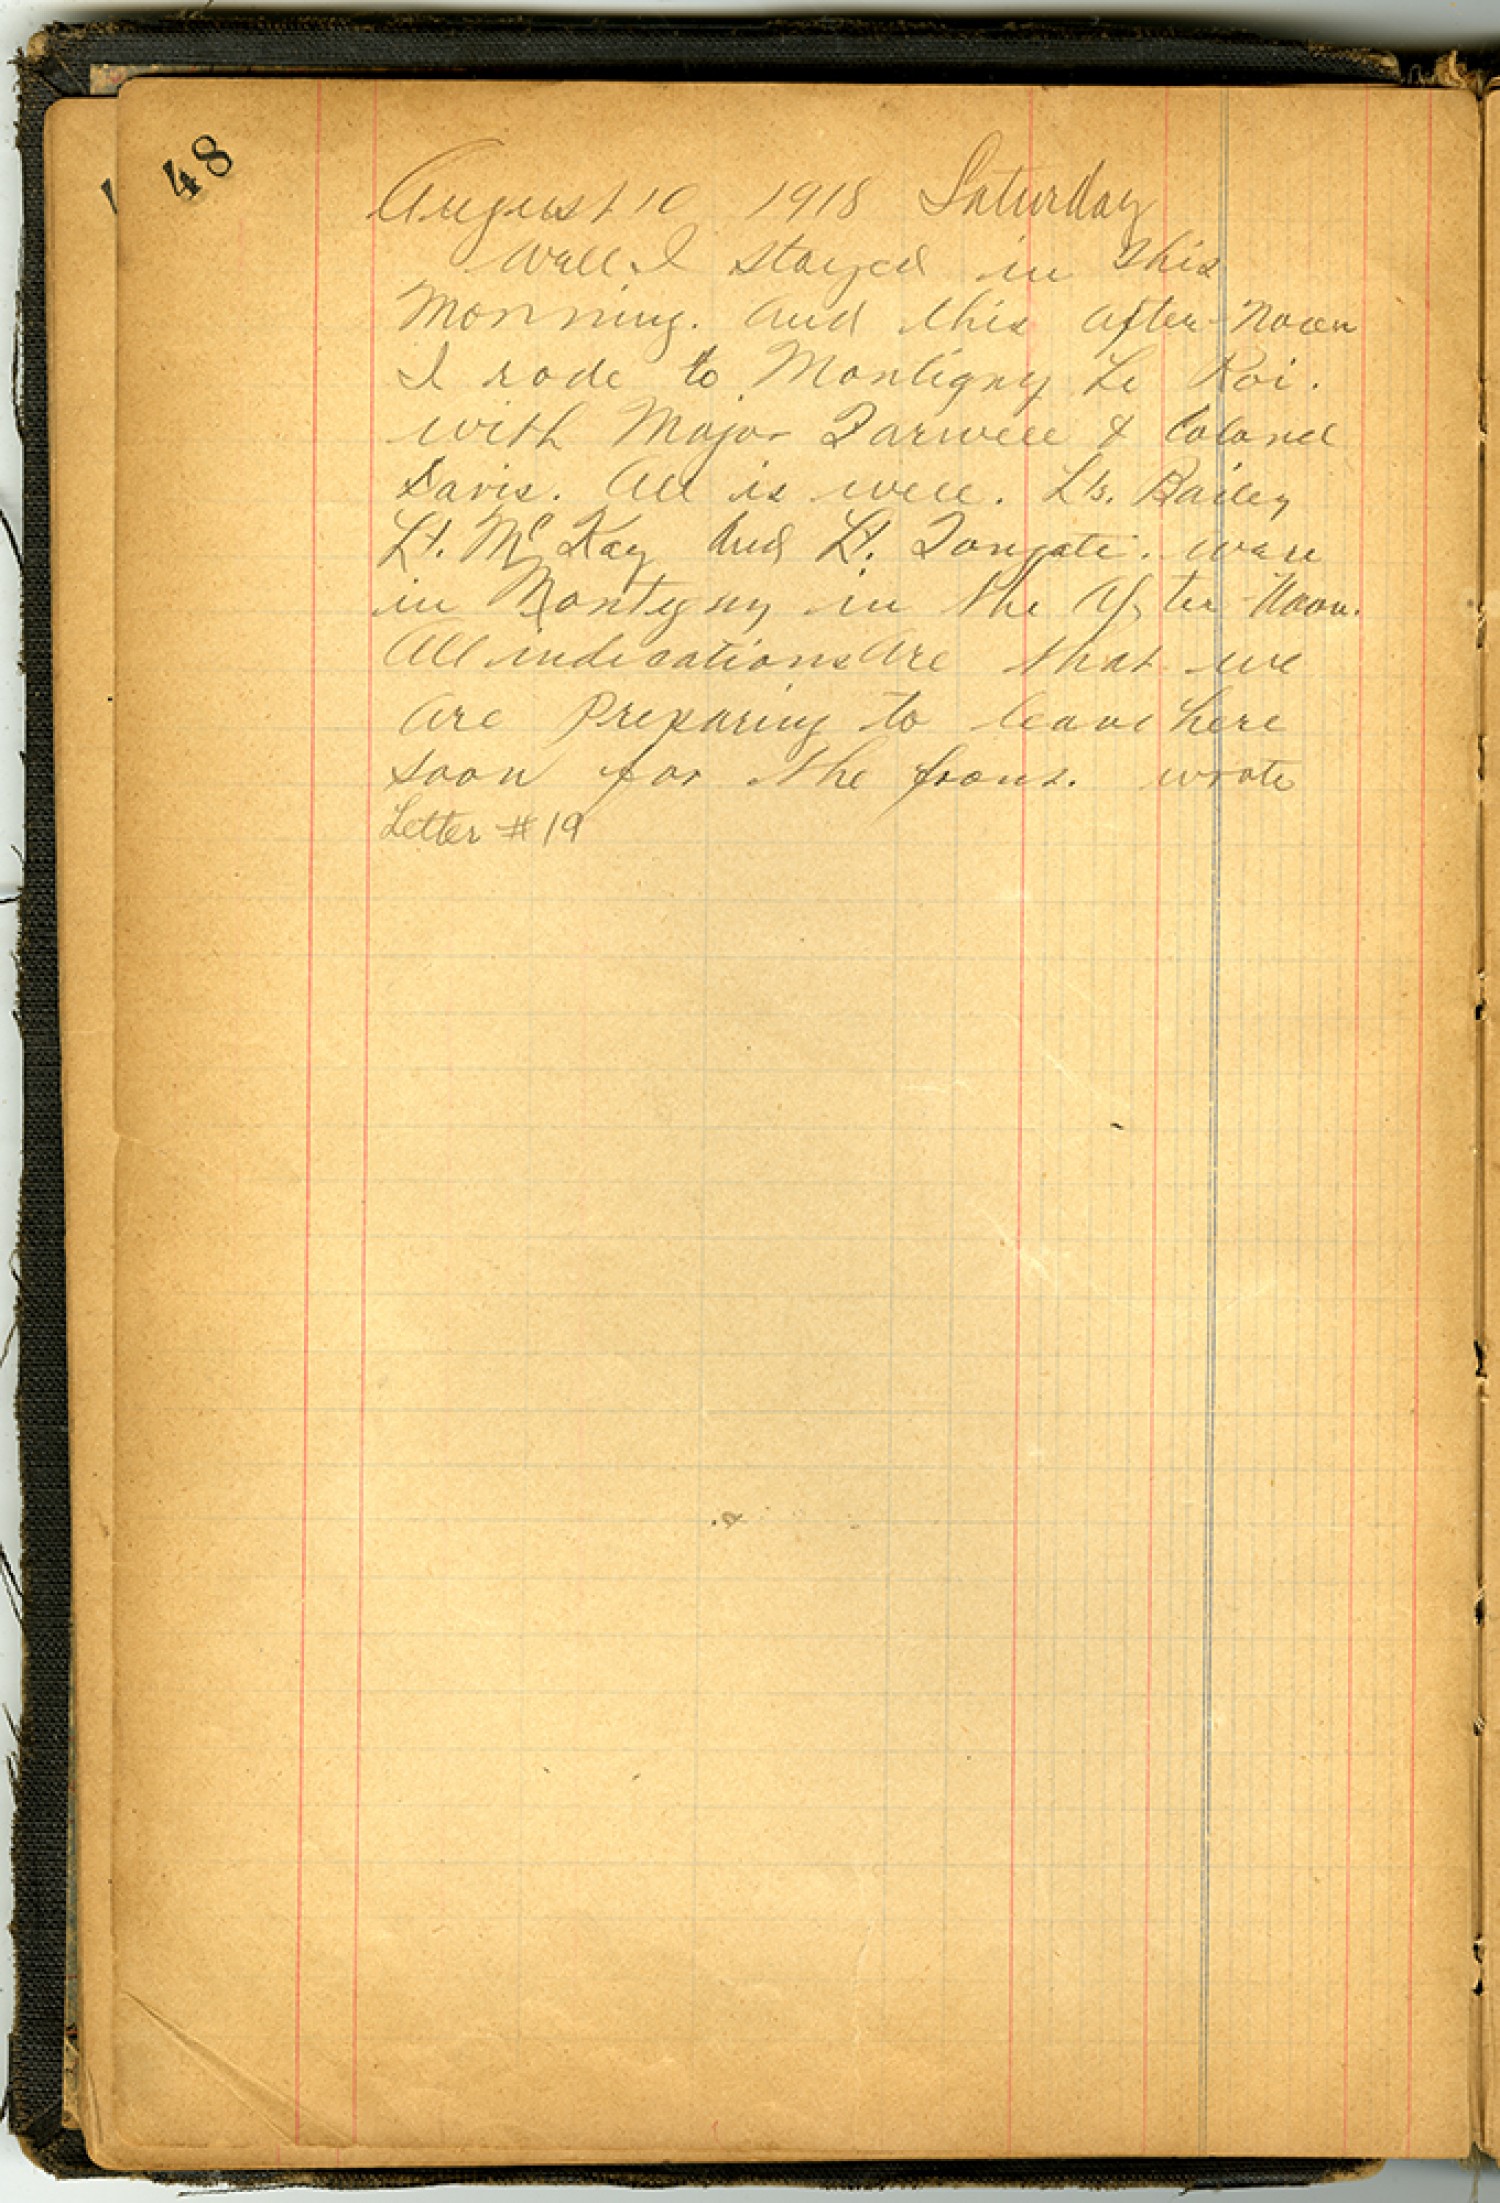 48
August 10 1918 Saturday
Well I stayed in this
Morning. And this After-Noon
I rode to Montigny Le Roi.
with Major Farwell & Colonel
Davis. All is well. Lts. Bailey
Lt. McKay And Lt. were
in Montigny in the After-Noon.
All indications Are that we
Are Preparing to leave here
soon for the front. wrote
Letter #19